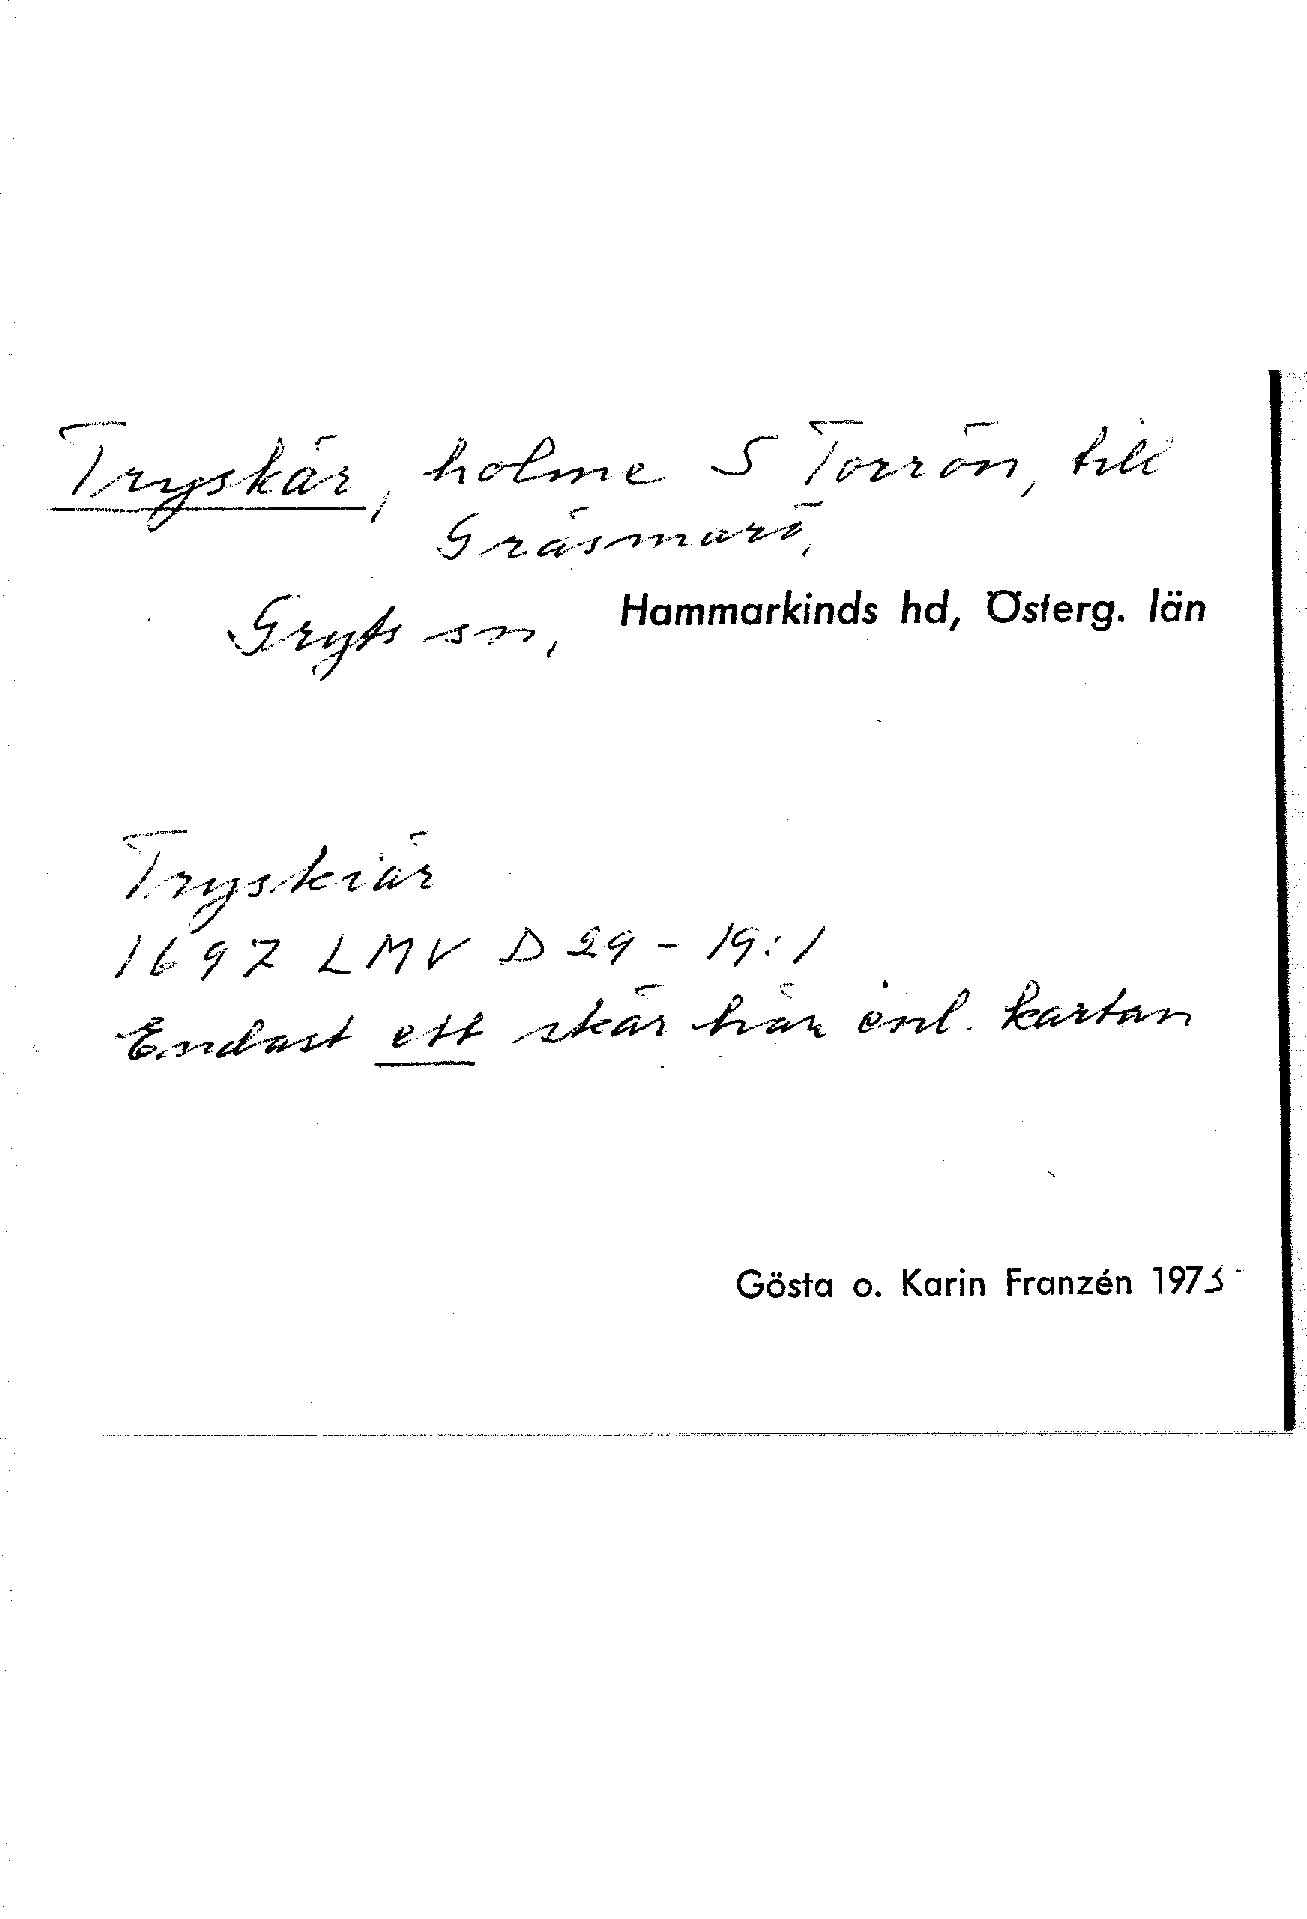 Tryskär, holme S Torrön, till
Gräsmarö,
Gryts sn, Hammarkinds hd, Österg. län
Tryskiär
1697 LMV D 29 - 19:1
Endast ett skär här enl. kartan
Gösta o. Karin Franzén 1975